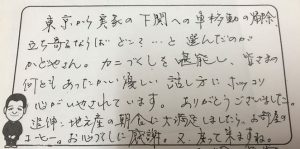 東京から実家の下関への車移動の際
立ち寄るならば どこ?…と選んだのが
かどやさん。カニづくしを堪能し、皆さまの
何ともあったかい優しい話し方にホッコリ
心がいやされています。ありがとうございました。
追伸:地元産の朝食に大満足しましたら。お部屋の
コーヒー。お心づくしに感謝。又、戻って来ますね。